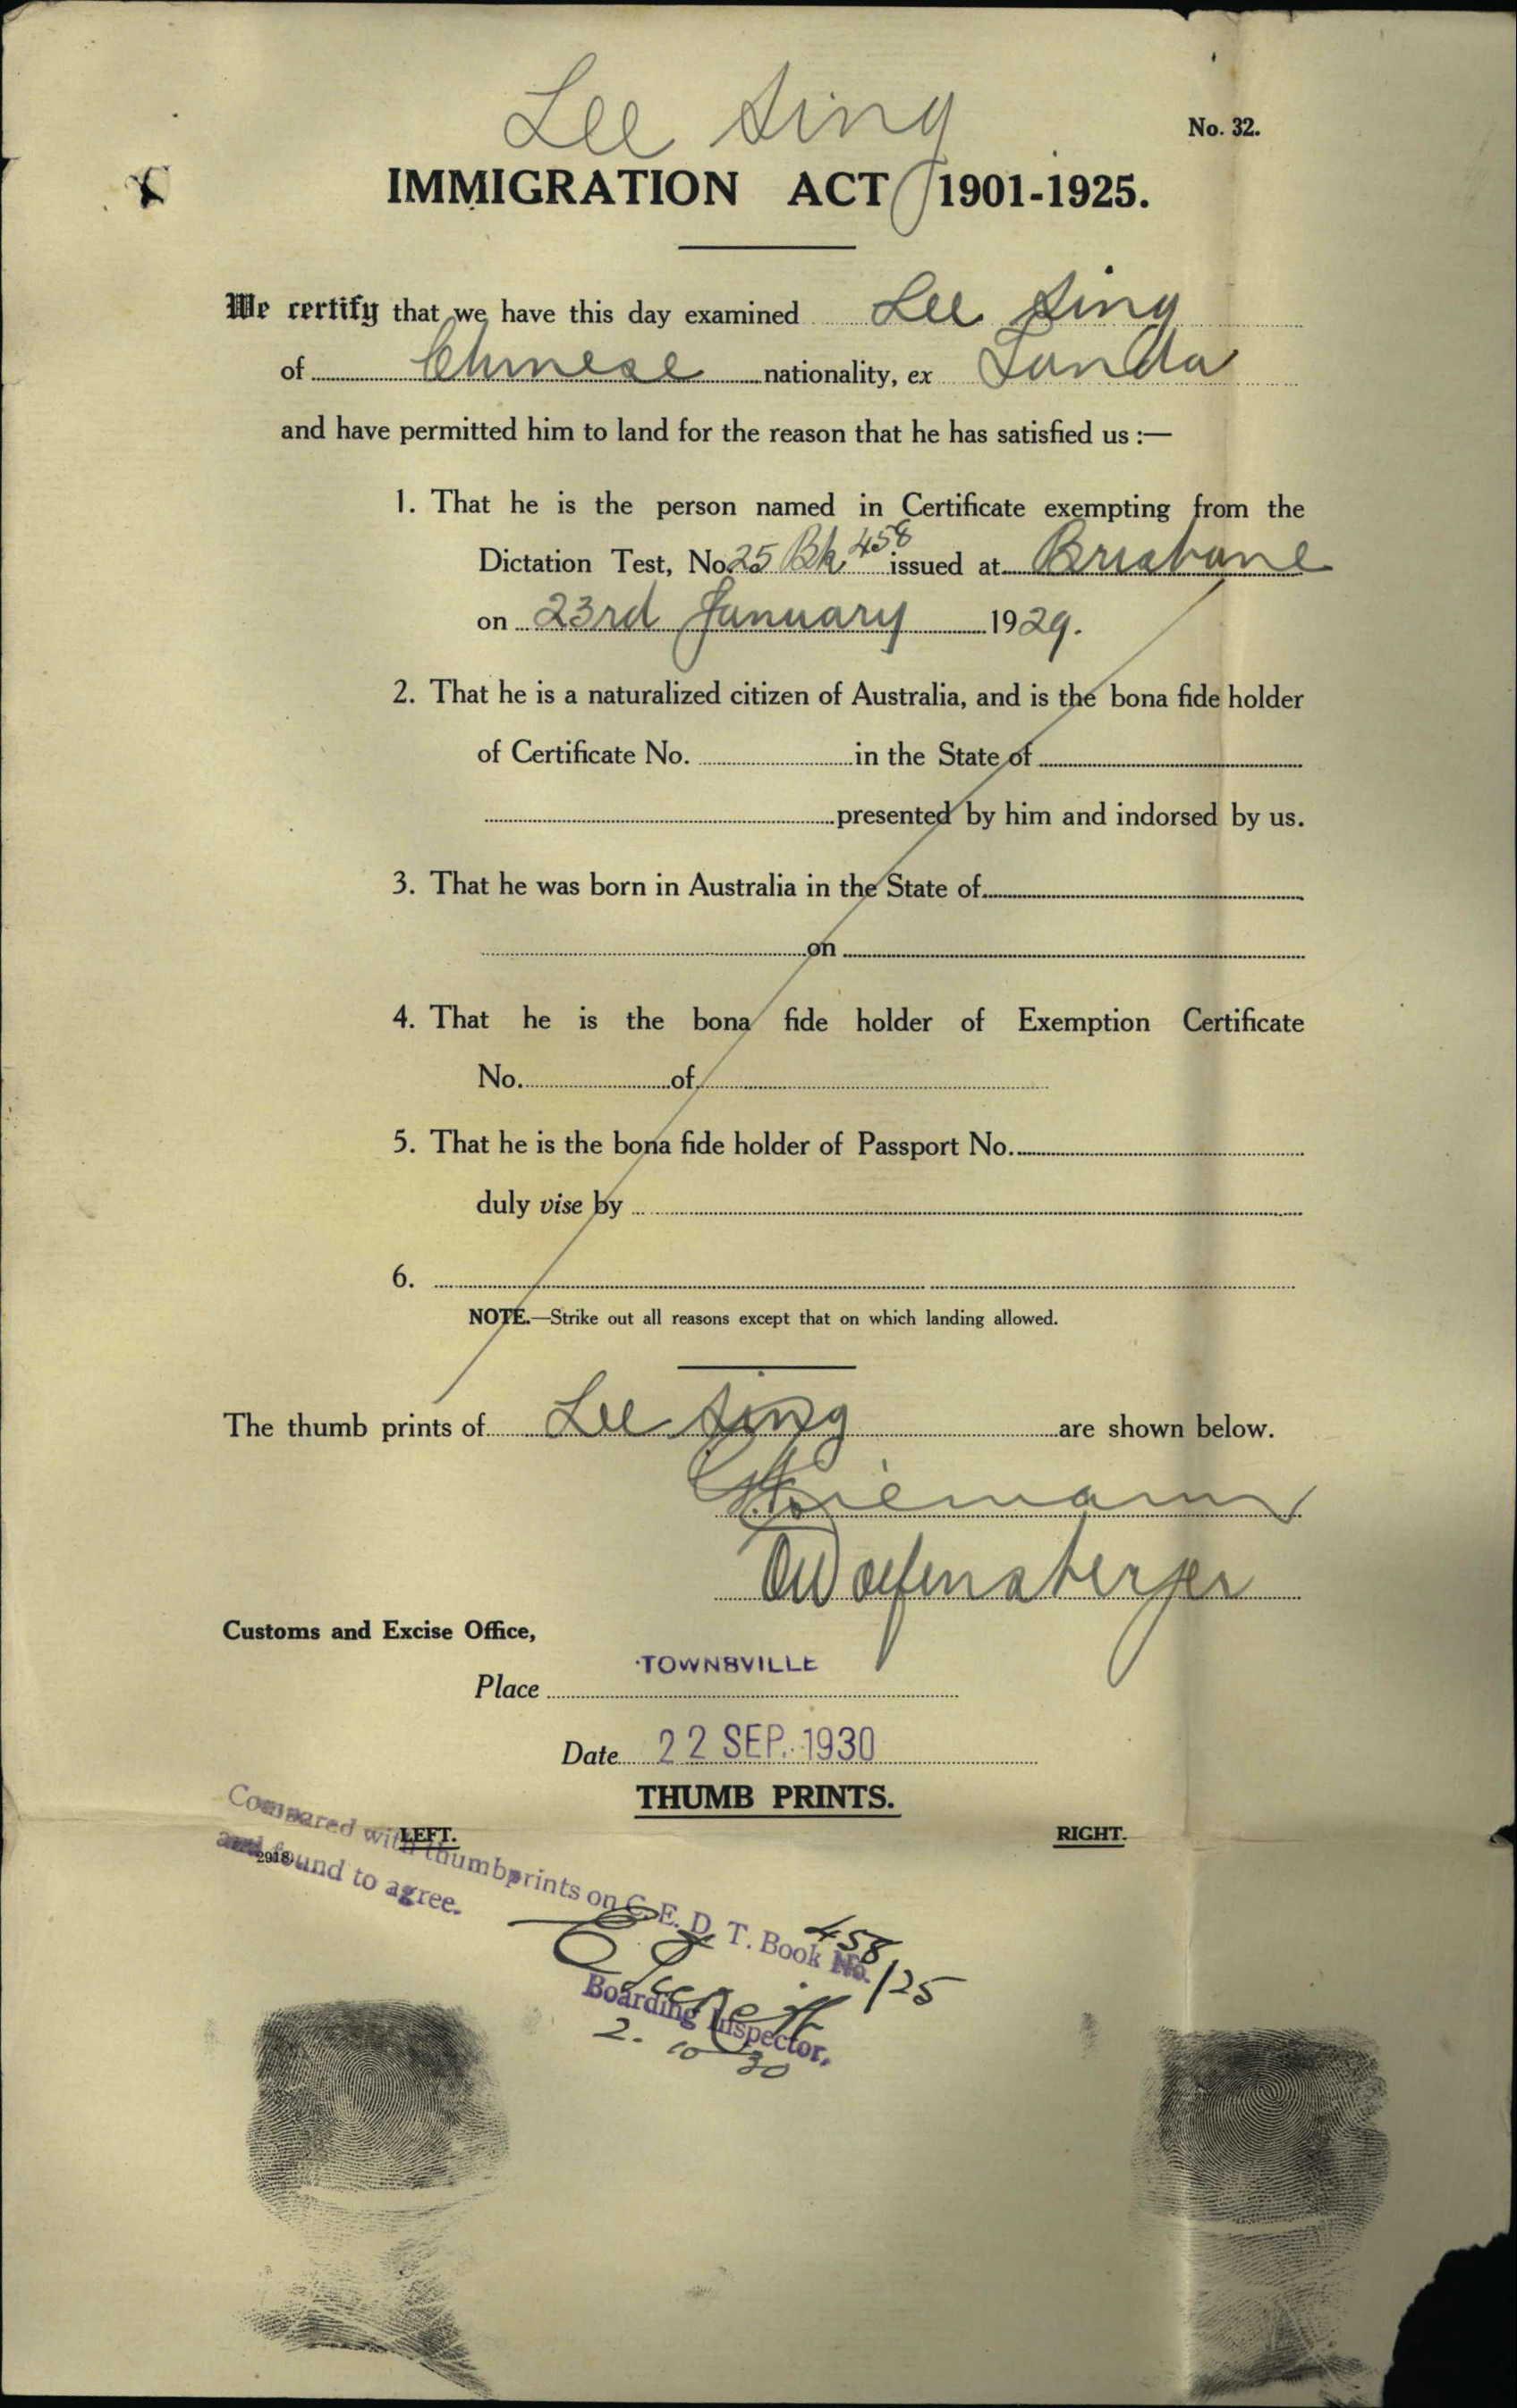 Lee Sing
No. 32.
IMMIGRATION ACT 1901-1925.
We certify that we have this day examined Lee Sing
of Chinese nationality, ex Tanda
and have permitted him to land for the reason that he has satisfied us :—
1. That he is the person named in Certificate exempting from the
Dictation Test, No. 25 Bk 458 issued at Brisbane
on 23rd January 1929.
2. That he is a naturalized citizen of Australia, and is the bona fide holder
of Certificate No. in the State of
presented by him and indorsed by us.
3. That he was born in Australia in the State of
on
4. That he is the bona fide holder of Exemption Certificate
No. of
5. That he is the bona fide holder of Passport No.
duly vise by
6.
NOTE.—Strike out all reasons except that on which landing allowed.
The thumb prints of Lee Sing are shown below.
Customs and Excise Office,
Place TOWNSVILLE
Date 22 SEP. 1930
THUMB PRINTS.
LEFT.
RIGHT.
2918
Compared with thumbprints on C. E. D. T. Book No. 458/25
and found to agree.
Boarding Inspector.
2. 10 30